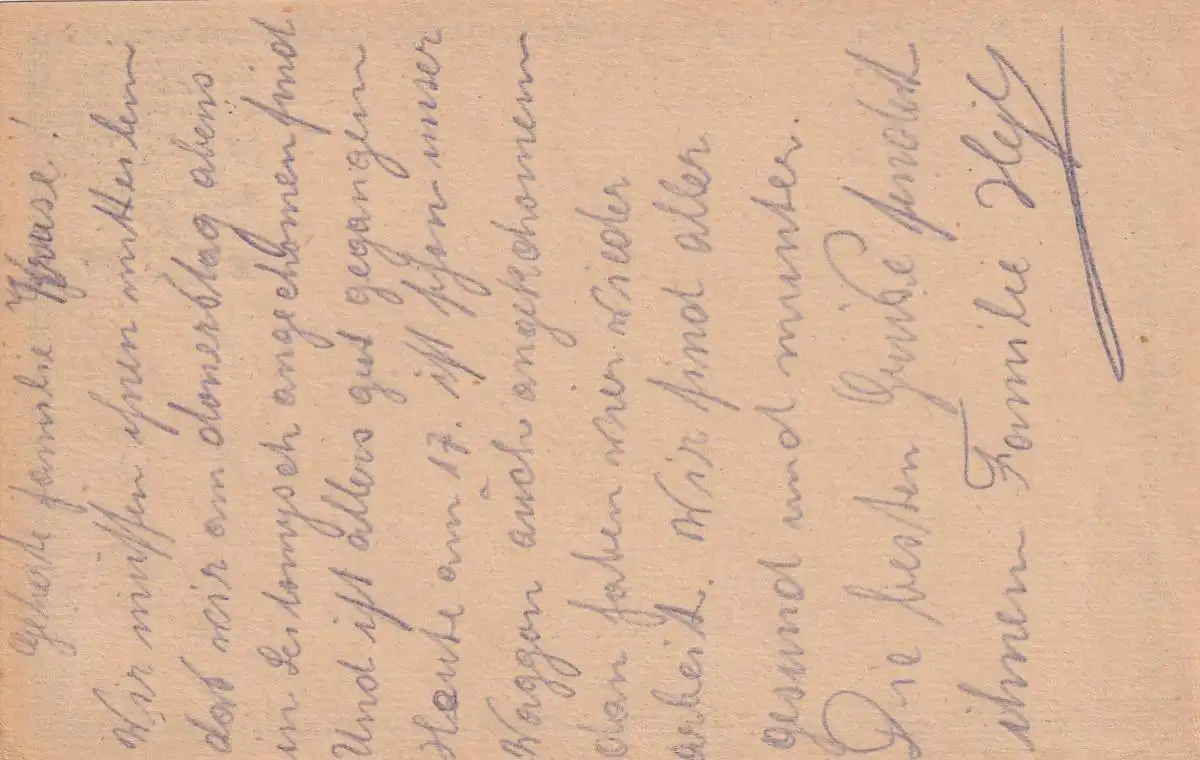 Geherte familie Krause!
Wir müssen ihnen mitteilen
das wir am donerstag abens
in angekomen sind
Und ist alles gut gegangen
Heute am 17. ist schon unser
Waggon auch angekchomen
dan haben wier wieder
arbeit. Wir sind aller
gesund und munter.
Die besten Grüße sendet
ihnen Familie